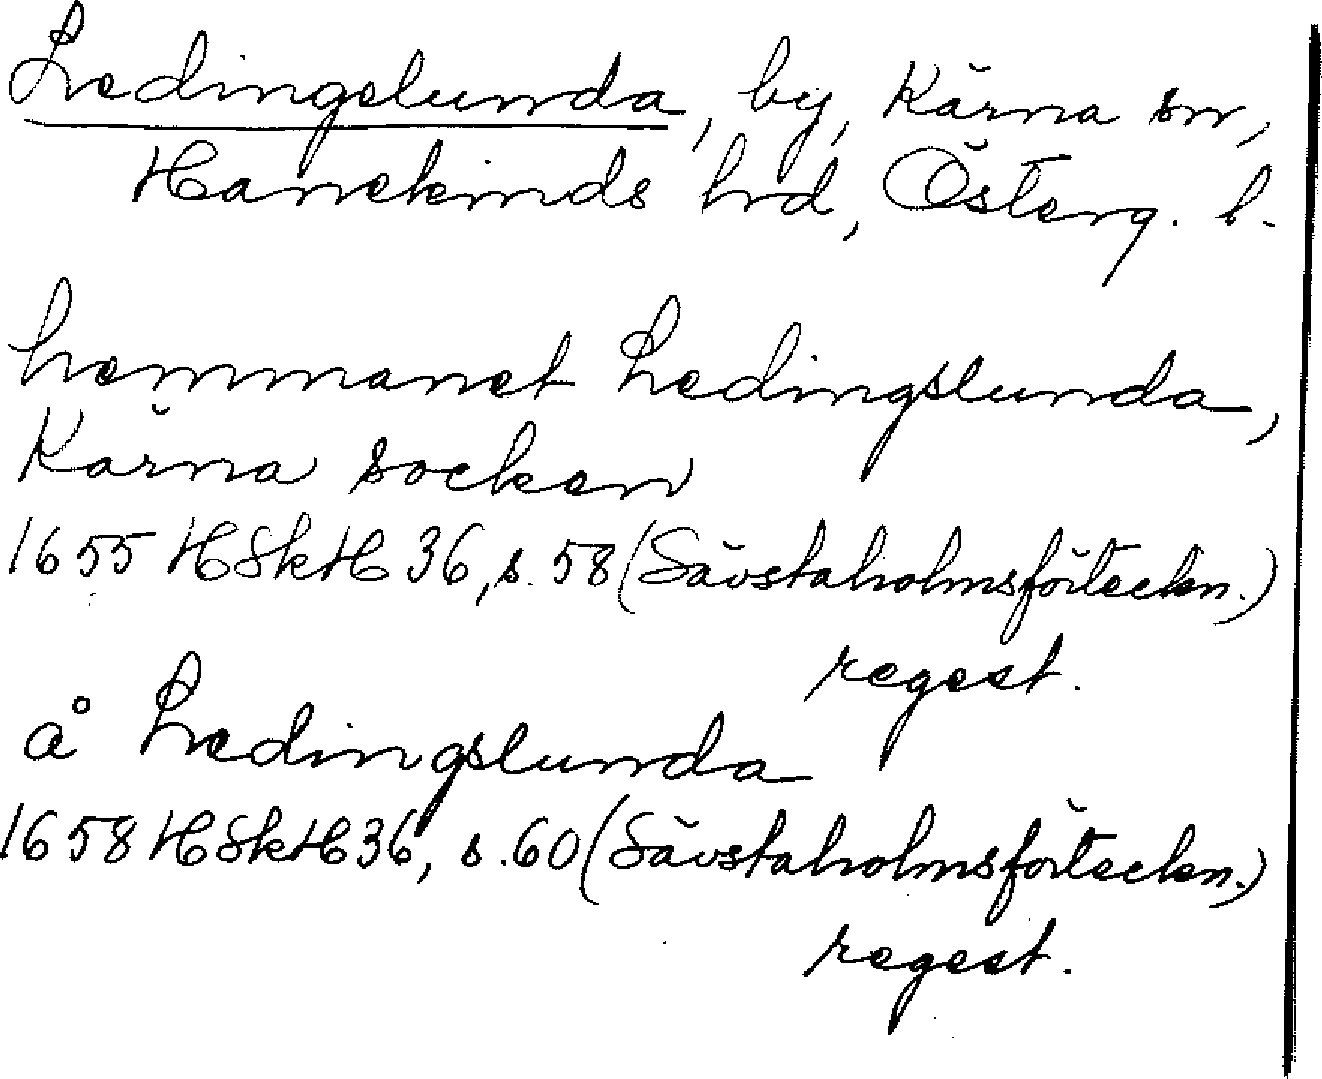 Ledingelunda, by, Kärna sn,
Hanekinds hrd, Österg. l.
hemmanet Ledingslunda,
Kärna socken
1655 HSkH 36, s. 58 (Sävstaholmsförteckn.)
regest.
å Ledingslunda
1658 HSkH 36, s. 60 (Sävstaholmsförteckn.)
regest.